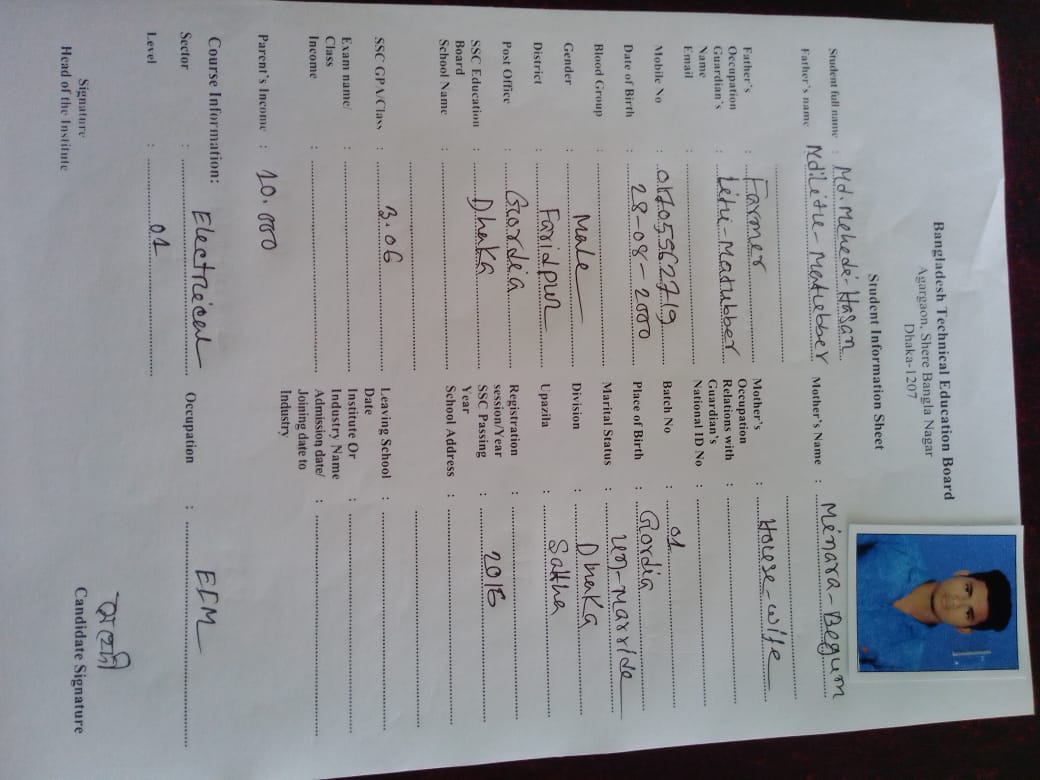 Bangladesh Technical Education Board
Agargaon, Shere Bangla Nagar
Dhaka-1207
Student Information Sheet
Student full name : Md. Mehedi-Hasan
Father's name : Md. Litu-Matubber Mother's Name : Minara-Begum
Father's Occupation : Farmer Mother's Occupation : House-wife
Guardian's Name : Litu-Matubber Relations with Guardian's :
Email : National ID No :
Mobile No : Batch No : 01
Date of Birth : 28-08-2000 Place of Birth : Gordia
Blood Group : Marital Status : un-marride
Gender : Male Division : Dhaka
District : Faridpur Upazila : Saltha
Post Office : Gordia Registration session/Year :
SSC Education Board : Dhaka SSC Passing Year :
School Name : School Address :
SSC GPA/Class : 3.06 Leaving School Date :
Exam name/Class : Institute Or Industry Name :
Income : Admission date/Joining date to Industry :
Parent's Income : 10.000
Course Information:
Sector : Electrical Occupation : EIM
Level : 01
Signature
Head of the Institute
Candidate Signature